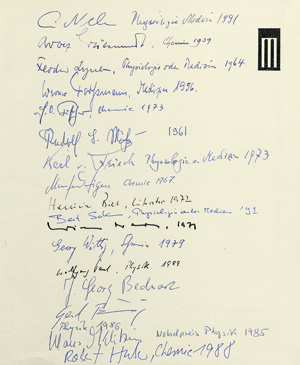 E. Neher Physiologie Medizin 1991
Chemie 1939
Feodor Lynen, Physiologie oder Medizin 1964
Werner Forßmann, Medizin 1956
E. O. Fischer, Chemie 1973
Rudolf L. Mößbauer 1961
Karl v. Frisch Physiologie u. Medizin 1973
Manfred Eigen Chemie 1967
Heinrich Böll, Literatur 1972
Bert Sakmann, Physiologie oder Medizin '91
1971
Georg Wittig, Chemie 1979
Wolfgang Paul, Physik 1989
J. Georg Bednorz
Gerd Binnig
Physik 1986
Nobelpreis Physik 1985
Robert Huber, Chemie 1988